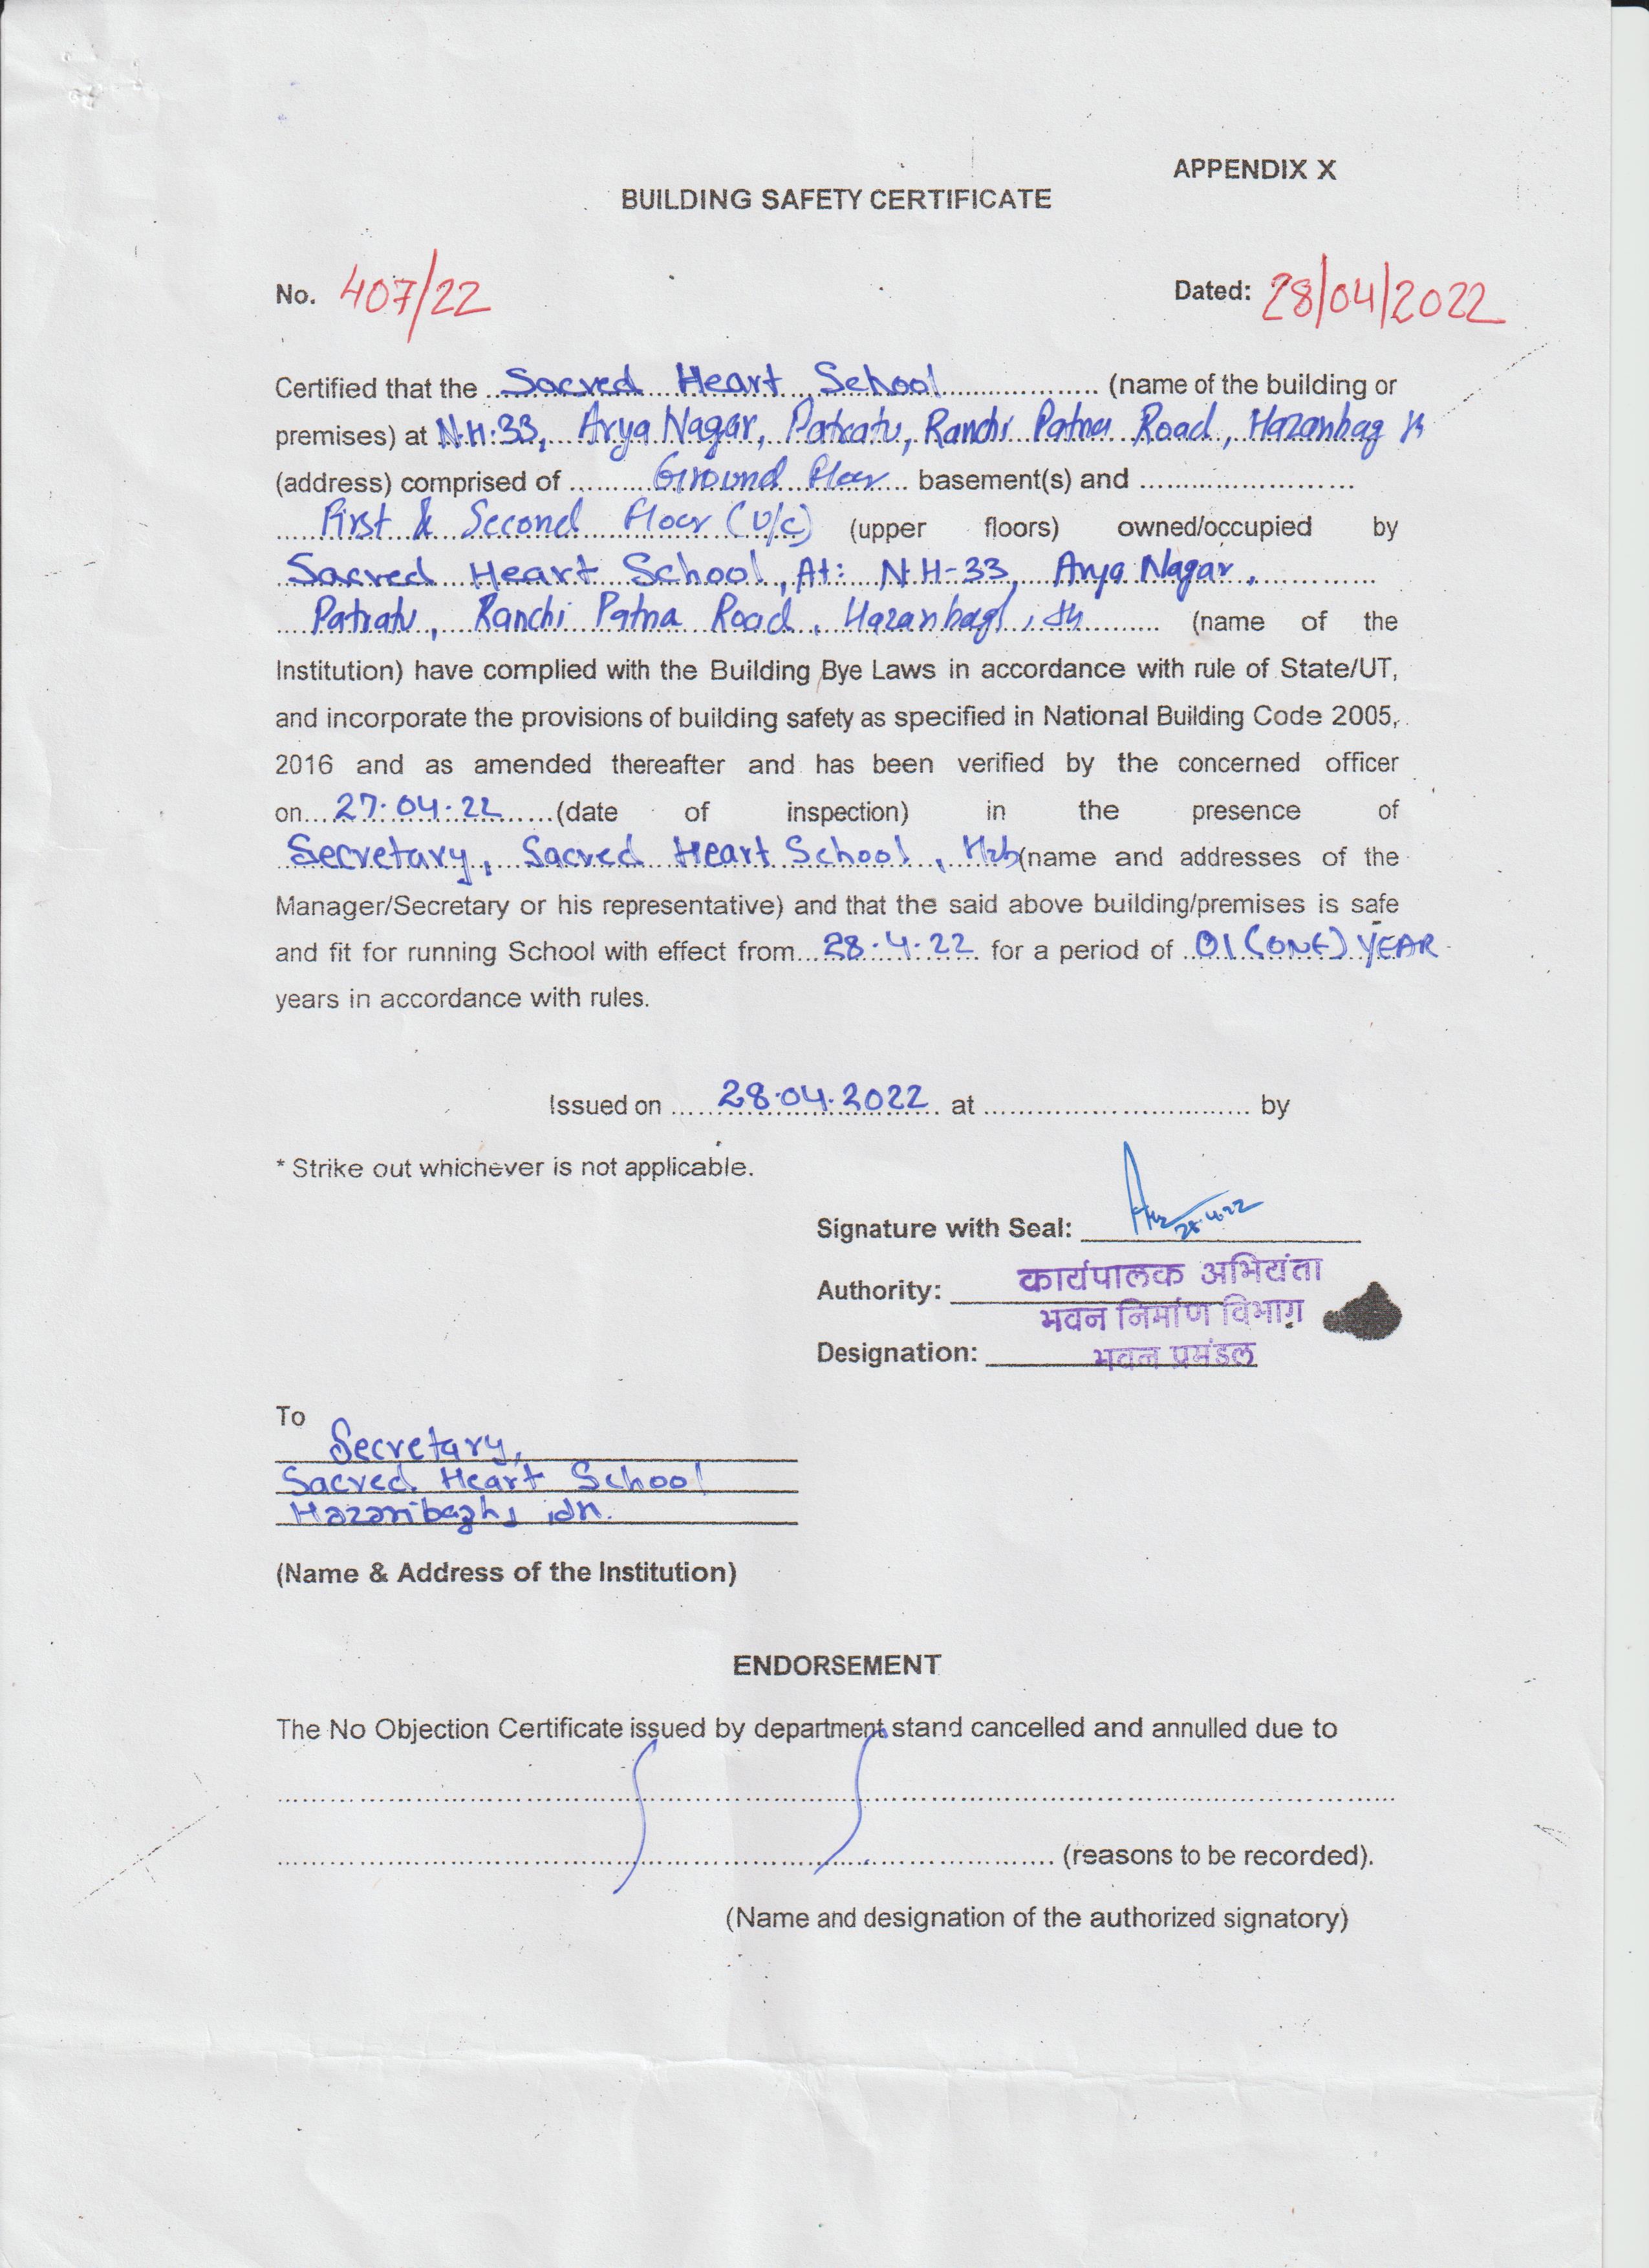 APPENDIX X
BUILDING SAFETY CERTIFICATE
No. 407/22 Dated: 28/04/2022
Certified that the ...Sacred Heart School.................... (name of the building or
premises) at N.H.33, Arya Nagar, Patratu, Ranchi Patna Road, Hazaribag
(address) comprised of .........Ground Floor... basement(s) and ........................
....First & Second Floor (U/C) (upper floors) owned/occupied by
Sacred Heart School, At: N.H-33, Arya Nagar,
Patratu, Ranchi Patna Road, Hazaribagh, Jh.......... (name of the
Institution) have complied with the Building Bye Laws in accordance with rule of State/UT,
and incorporate the provisions of building safety as specified in National Building Code 2005,
2016 and as amended thereafter and has been verified by the concerned officer
on...27.04.22.......(date of inspection) in the presence of
Secretary, Sacred Heart School, Hzb(name and addresses of the
Manager/Secretary or his representative) and that the said above building/premises is safe
and fit for running School with effect from...28.4.22 for a period of ..01 (ONE) YEAR
years in accordance with rules.
Issued on ......28.04.2022.. at ................................ by
* Strike out whichever is not applicable.
Signature with Seal: 28.4.22
Authority: कार्यपालक अभियंता
भवन निर्माण विभाग
Designation: भवन प्रमंडल
To
Secretary,
Sacred Heart School
Hazaribagh, Jh.
(Name & Address of the Institution)
ENDORSEMENT
The No Objection Certificate issued by department stand cancelled and annulled due to
................................................................................
........................................................ (reasons to be recorded).
(Name and designation of the authorized signatory)